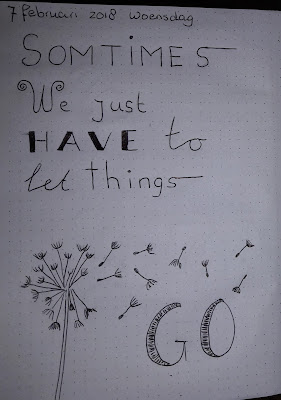 7 februari 2018 woensdag
SOMTIMES
We just
HAVE to
let things
GO